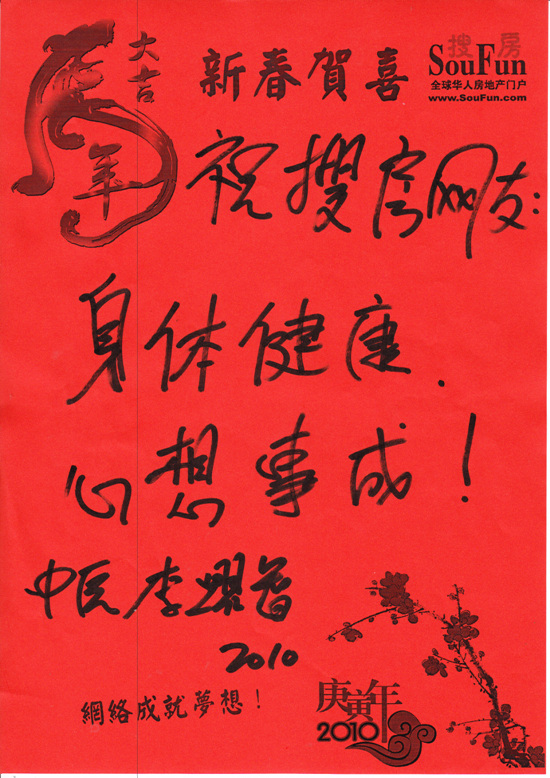 虎年
大吉
新春賀喜
搜房
SouFun
全球华人房地产门户
www.SouFun.com
祝搜房网友:
身体健康.
心想事成!
中医李
2010
網絡成就夢想!
庚寅年
2010